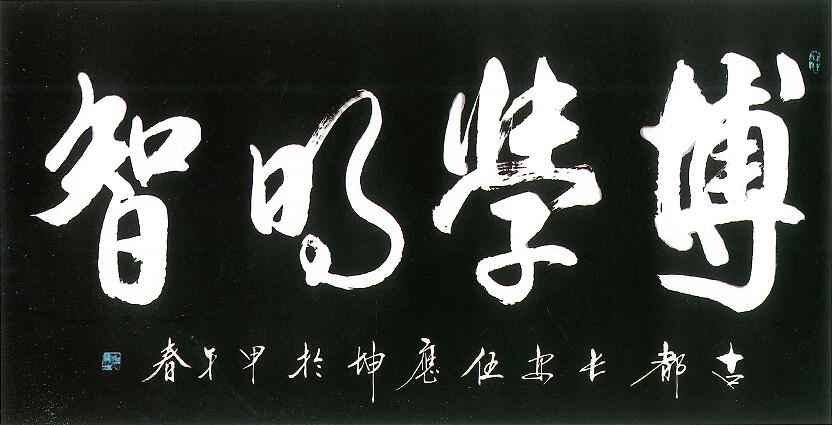 博学明智
古都长安任应坤於甲午春